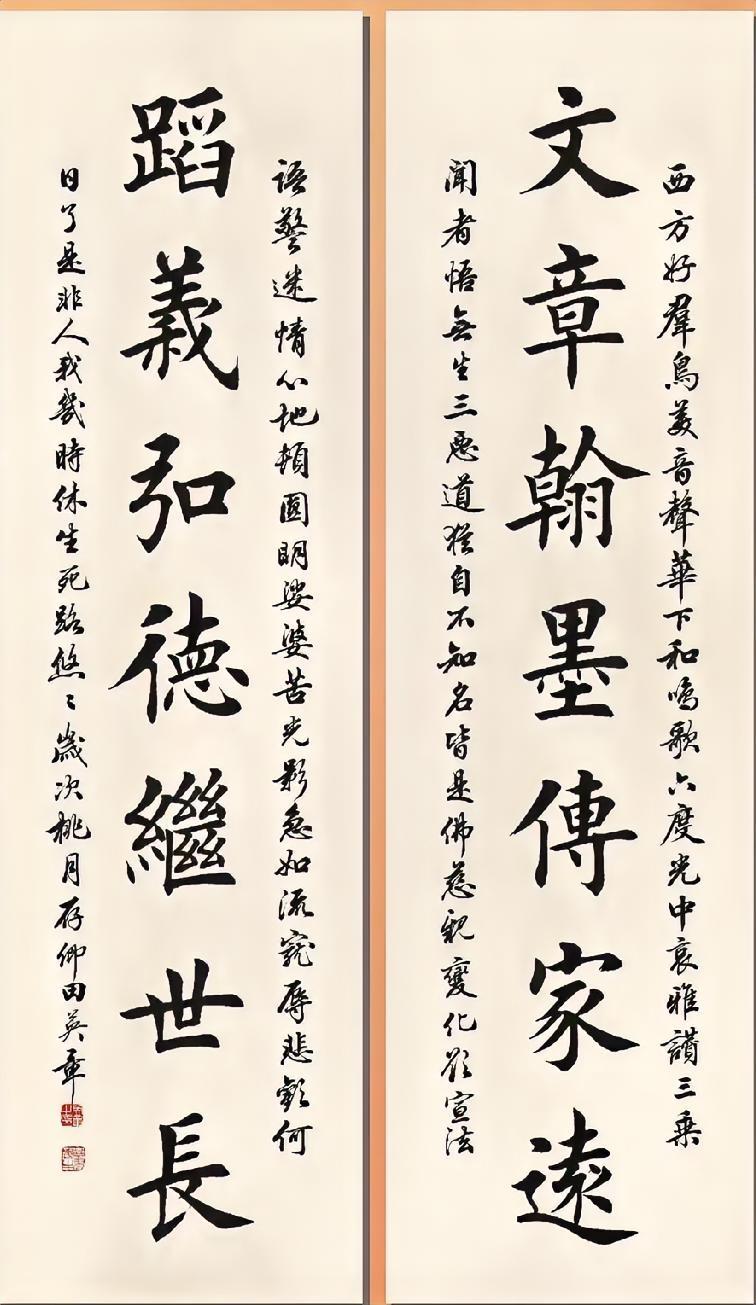 西方好羣鳥美音聲華下和鳴歌六度光中哀雅讚三乘
文章翰墨傳家遠
聞者悟無生三惡道猶自不知名皆是佛慈親變化欲宣法
語警迷情心地頓圓明娑婆苦光影急如流寵辱悲歡何
蹈義弘德繼世長
日了是非人我幾時休生死路悠〻歲次桃月存卿田英章